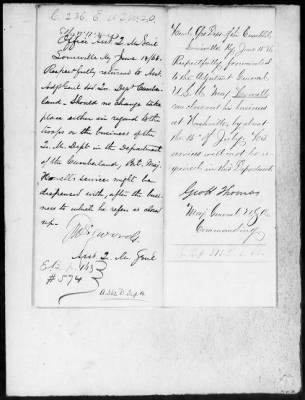 Office Asst. Q. M. Genl
Louisville Ky June 14/66.
Respectfully returned to Asst.
Adjt Genl Hd. Qrs. Dept Cumber-
land. Should no change take
place either in regard to the
troops or the business of the
Q. M. Dept in the Department
of the Cumberland, Bvt. Maj.
Howell's services might be
dispensed with, after the busi-
ness to which he refers is closed
up.
Asst. Q. M. Genl
# 574
Head Qrs Dept. of the Cumbld.
Louisville Ky June 15/66
Respectfully forwarded
to the Adjutant General
U.S.A. Maj. Howell
can close out his business
at Nashville by about
the 15th of July. His
services will not be re-
quired in this Department
Geo H Thomas
Maj. General U.S.A.
Commanding